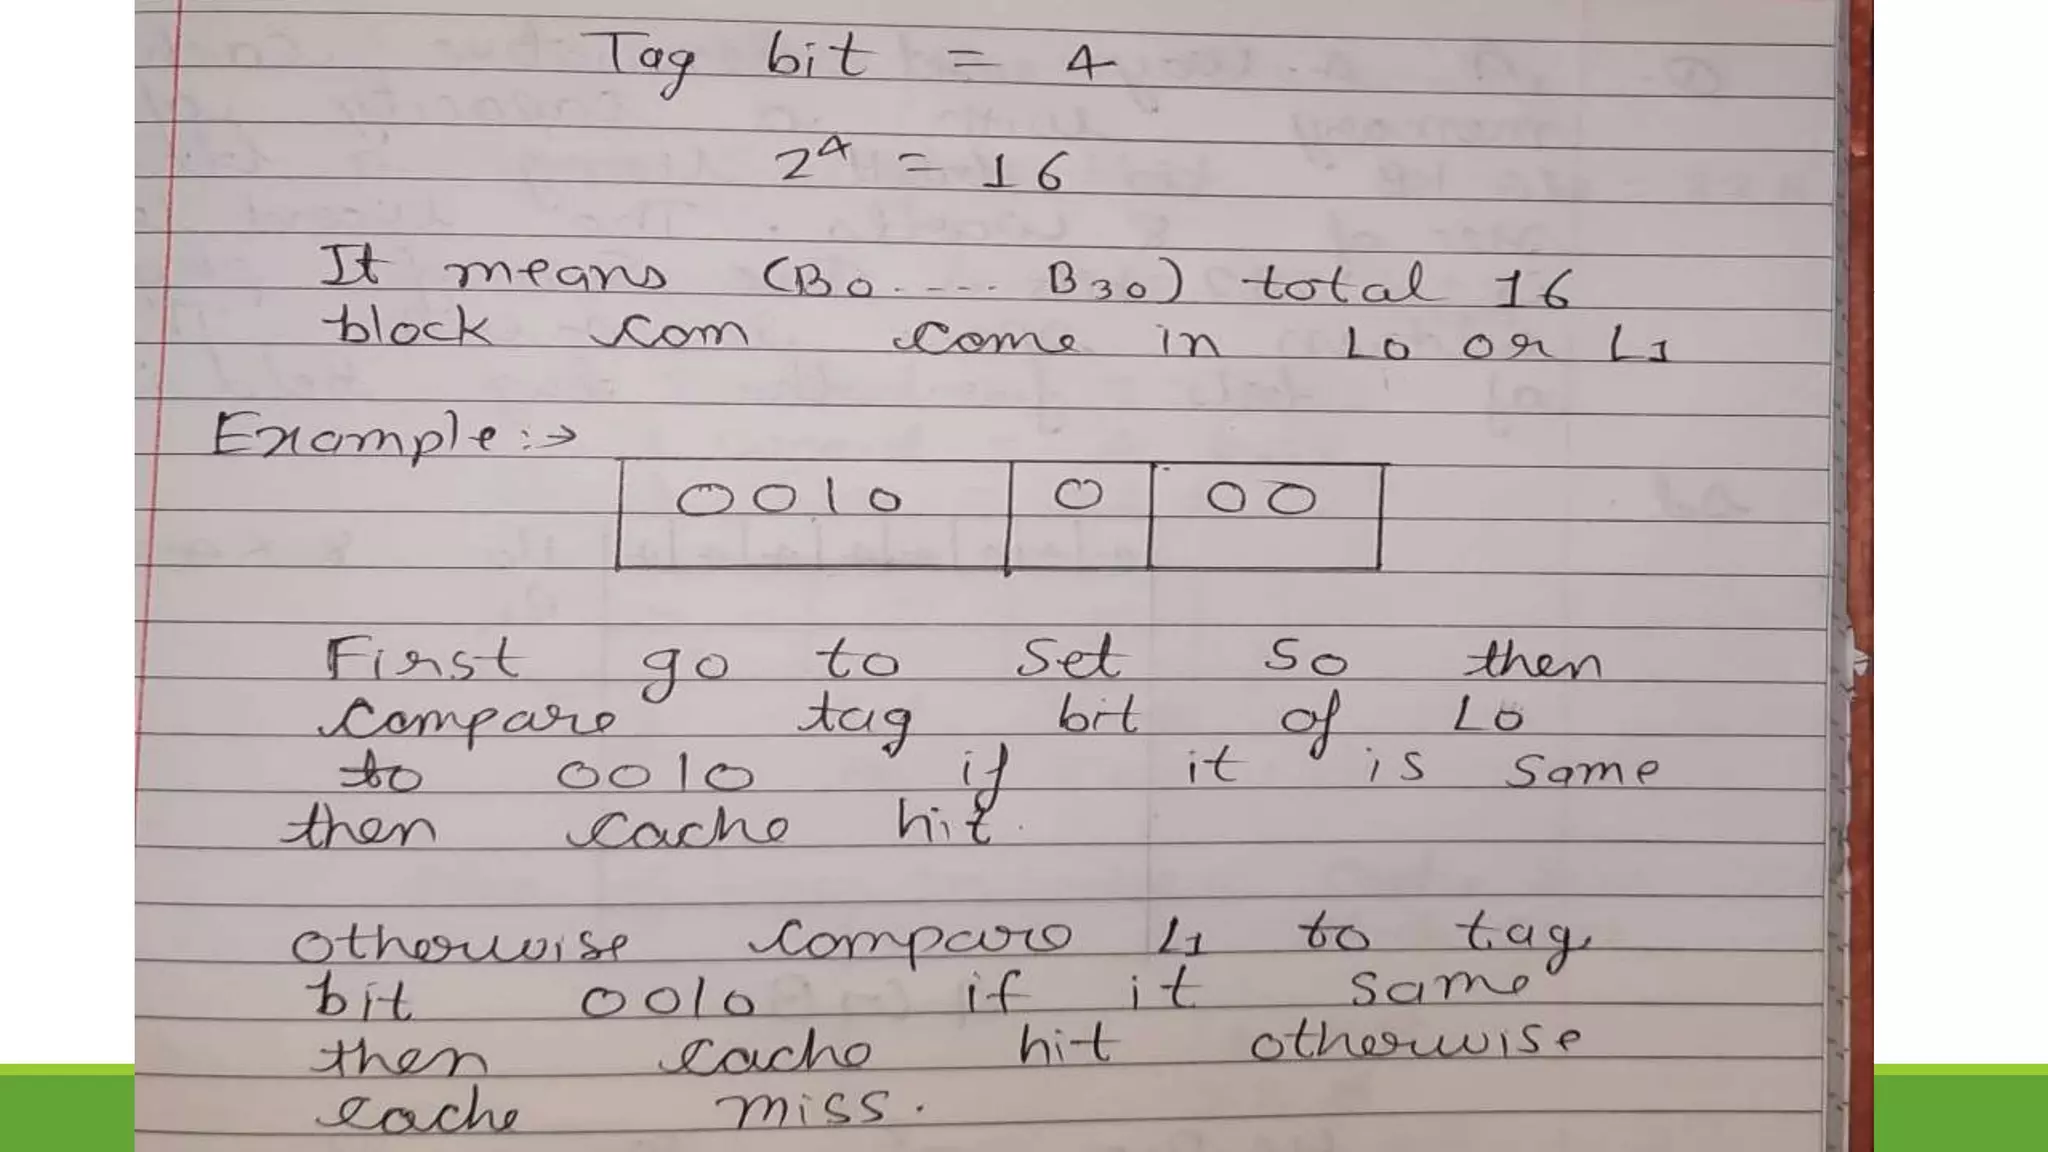 Tag bit = 4
2⁴ = 16
It means (B0 ..... B30) total 16
block com come in L0 or L1
Example :→
0010 0 00
First go to set S0 then
compare tag bit of L0
to 0010 if it is same
then cache hit.
otherwise compare L1 to tag
bit 0010 if it same
then cache hit otherwise
cache miss.